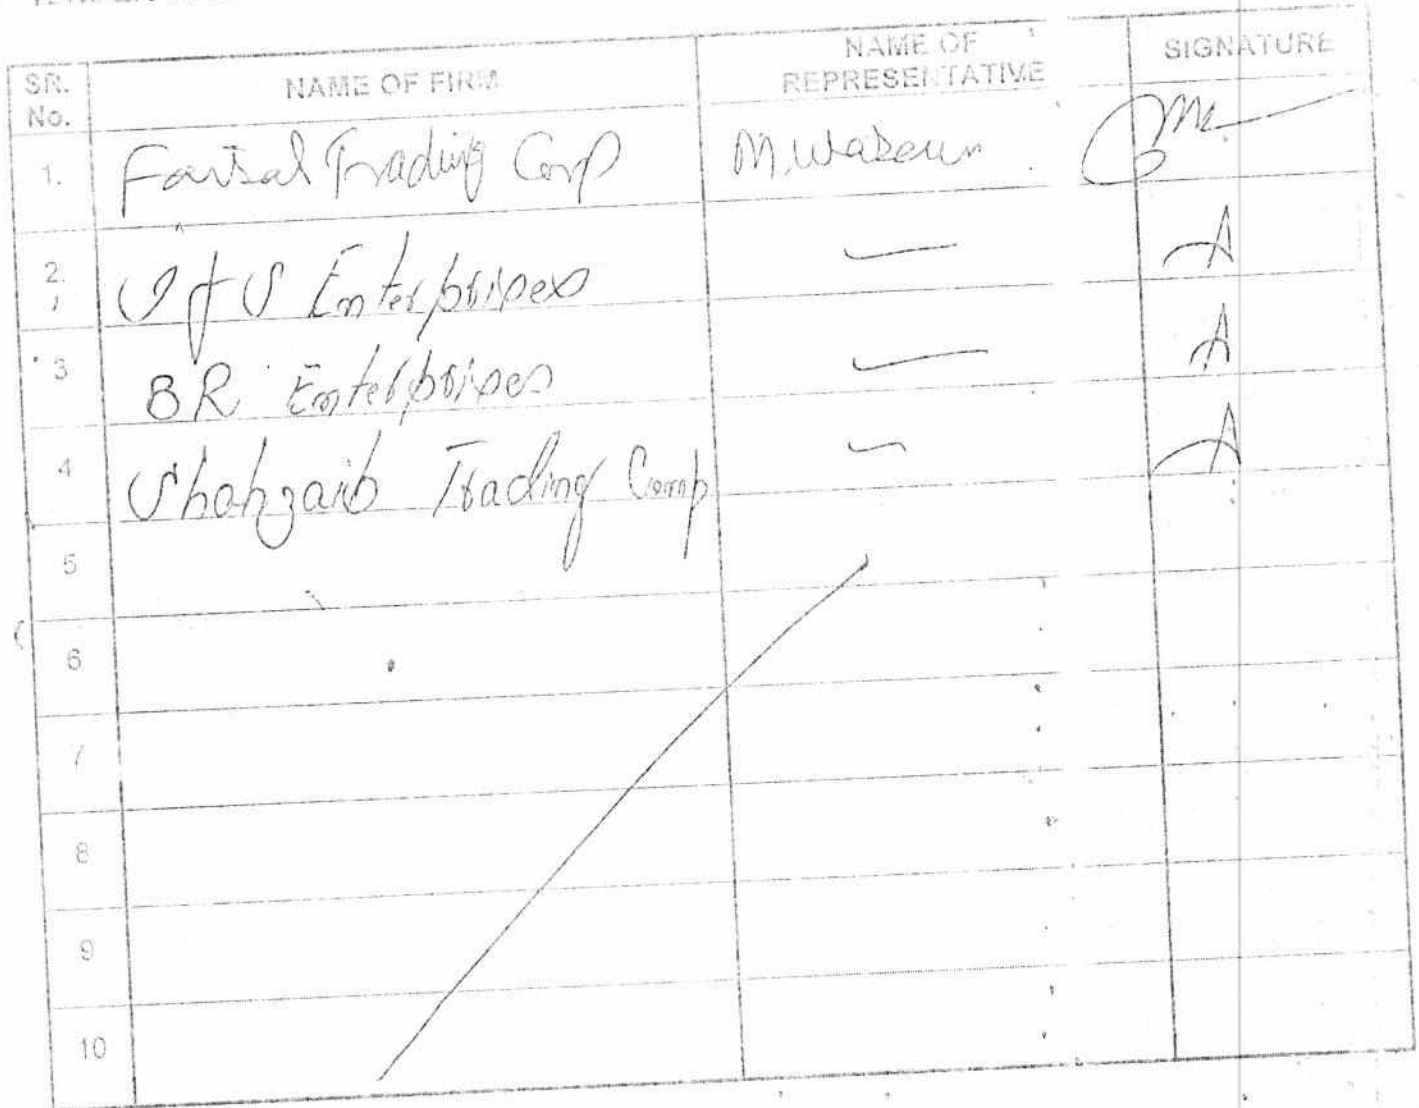 SR. No. NAME OF FIRM NAME OF REPRESENTATIVE SIGNATURE
1. Faisal Trading Corp M. Waseem
2. Enterprises —
3 BR Enterprises —
4 Shahzaib Trading Comp —
5
6
7
8
9
10